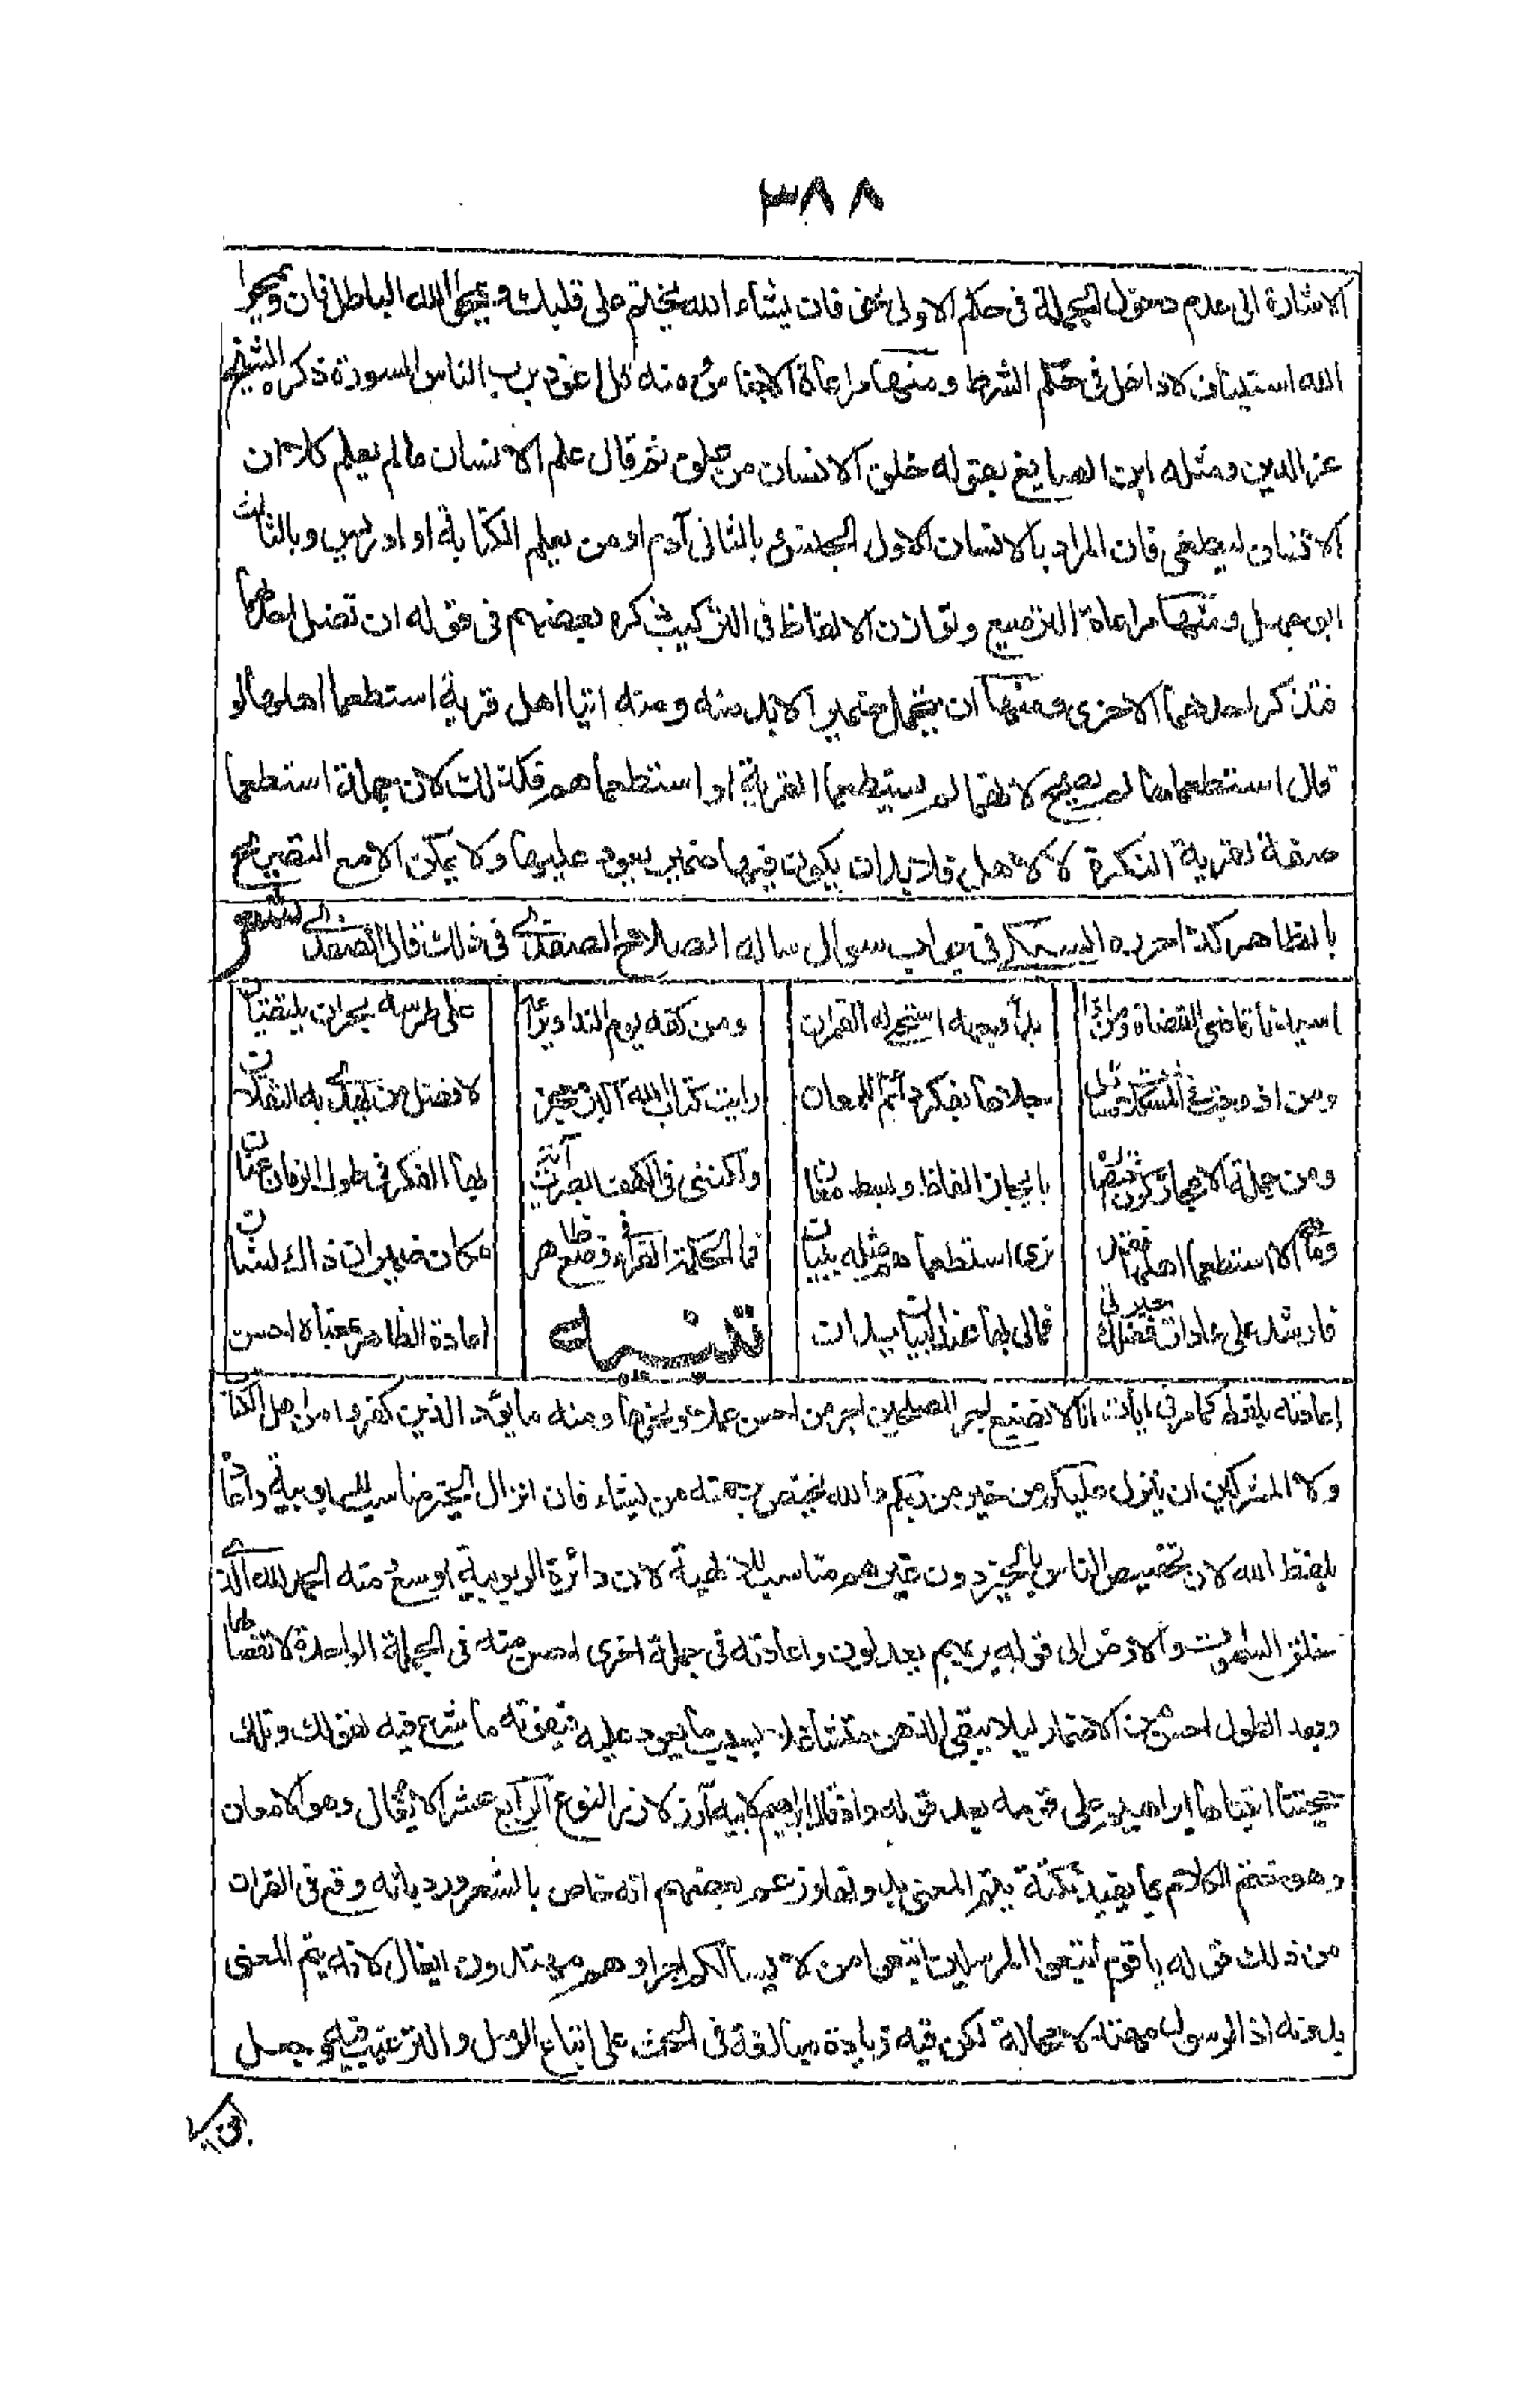 ٣٨٨
الاشارة الى عدم دخول الجملة فى حكم الاولى نحو فان يشاء الله يختم على قلبك و يمحو الله الباطل فان ويمحوا
الله استيناف لا داخل فى حكم الشرط ومنها مراعاة الجناس ومنه قل اعوذ برب الناس السورة ذكره الشيخ
عز الدين ومثله ابن الصايغ بقوله خلق الانسان من علق ثم قال علم الانسان ما لم يعلم كلا ان
الانسان ليطغى فان المراد بالانسان الاول الجنس و بالثانى آدم او من يعلم الكتابة او ادريس وبالثالث
ابو جهل ومنها مراعاة الترصيع وتوازن الالفاظ فى التركيب ذكره بعضهم فى قوله ان تضل احداهما
فتذكر احداهما الاخرى ومنها ان يتحمل ضميرا لابد منه ومنه اتيا اهل قرية استطعما اهلها لو
قال استطعماها لم يصح لانهما لم يستطعما القرية او استطعماهم فكذلك لان جملة استطعما
صفة لقرية النكرة لا لاهل فلا بد ان يكون فيها ضمير يعود عليها ولا يمكن الا مع التصريح
بالظاهر كذا حرره السبكى فى جواب سوال ساله الصلاح الصفدى فى ذلك قال الصفدى شعر
اسيدنا قاضى القضاة ومن اذا بدا وجهه استحى له القمران ومن كفه يوم الندا ويراعه على طرسه بحران يلتقيان
ومن ان دجت فى المشكلات مسائل جلاها بفكر دائم اللمعان رايت كتاب الله اكبر معجز لافضل من يهدى به الثقلان
ومن جملة الاعجاز كون اختصاره بايجاز الفاظ وبسط معان ولكننى فى الكهف ابصرت آية بها الفكر فى طول الزمان عنان
وما هى الا استطعما اهلها فقد نرى استطعماهم مثله ببيان فما الحكمة الغراء فى وضع ظاهر مكان ضمير ان ذاك لشان
فارشد على عادات فضلك حيرتى فمالى بها عند البيان يدان تنبيه اعادة الظاهر بمعناه احسن
اعادته بلفظه كما مر فى ايات انا لا نضيع اجر المصلحين اجر من احسن عملا ونحوها ومنه ما يود الذين كفروا من اهل الكتاب
ولا المشركين ان ينزل عليكم من خير من ربكم والله يختص برحمته من يشاء فان انزال الخير مناسب للربوبية واعاده
بلفظ الله لان تخصيص الناس بالخير دون غيرهم مناسب للالهية لان دائرة الربوبية اوسع ومنه الحمد لله الذى
خلق السموت والارض الى قوله بربهم يعدلون واعادته فى جملة اخرى احسن منه فى الجملة الواحدة لانفصالها
وبعد الطول احسن من الاضمار ليلا يبقى الذهن متشاغلا بسبب ما يعود عليه فيفوته ما شرع فيه كقوله وتلك
حجتنا اتيناها ابراهيم على قومه بعد قوله واذ قال ابراهيم لابيه آزر النوع الرابع عشر الايغال وهو الامعان
وهو ختم الكلام بما يفيد نكتة يتم المعنى بدونها وزعم بعضهم انه خاص بالشعر ورد بانه وقع فى القران
من ذلك قوله يا قوم اتبعوا المرسلين اتبعوا من لا يسالكم اجرا وهم مهتدون ايغال لانه يتم المعنى
بدونه اذ الرسول مهتد لا محالة لكن فيه زيادة مبالغة فى الحث على اتباع الرسل والترغيب فيه وجعل